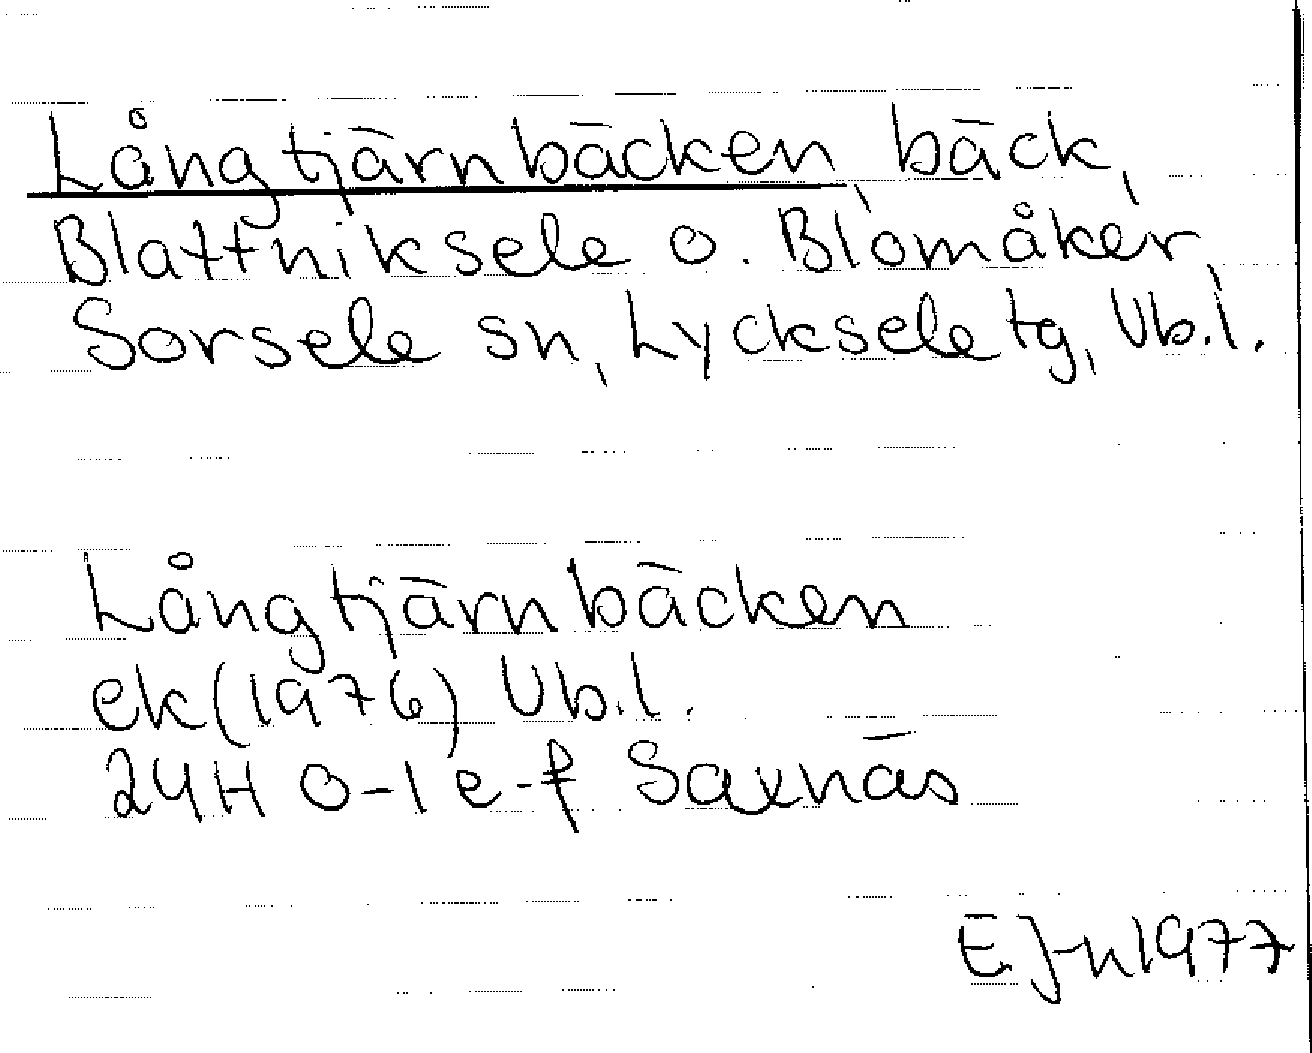 Långtjärnbäcken, bäck,
Blattniksele o. Blomåker,
Sorsele sn, Lycksele tg, Vb.l.
Långtjärnbäcken
ek(1976) Vb.l.
24H 0-1 e-f Saxnäs
E J-n 1977